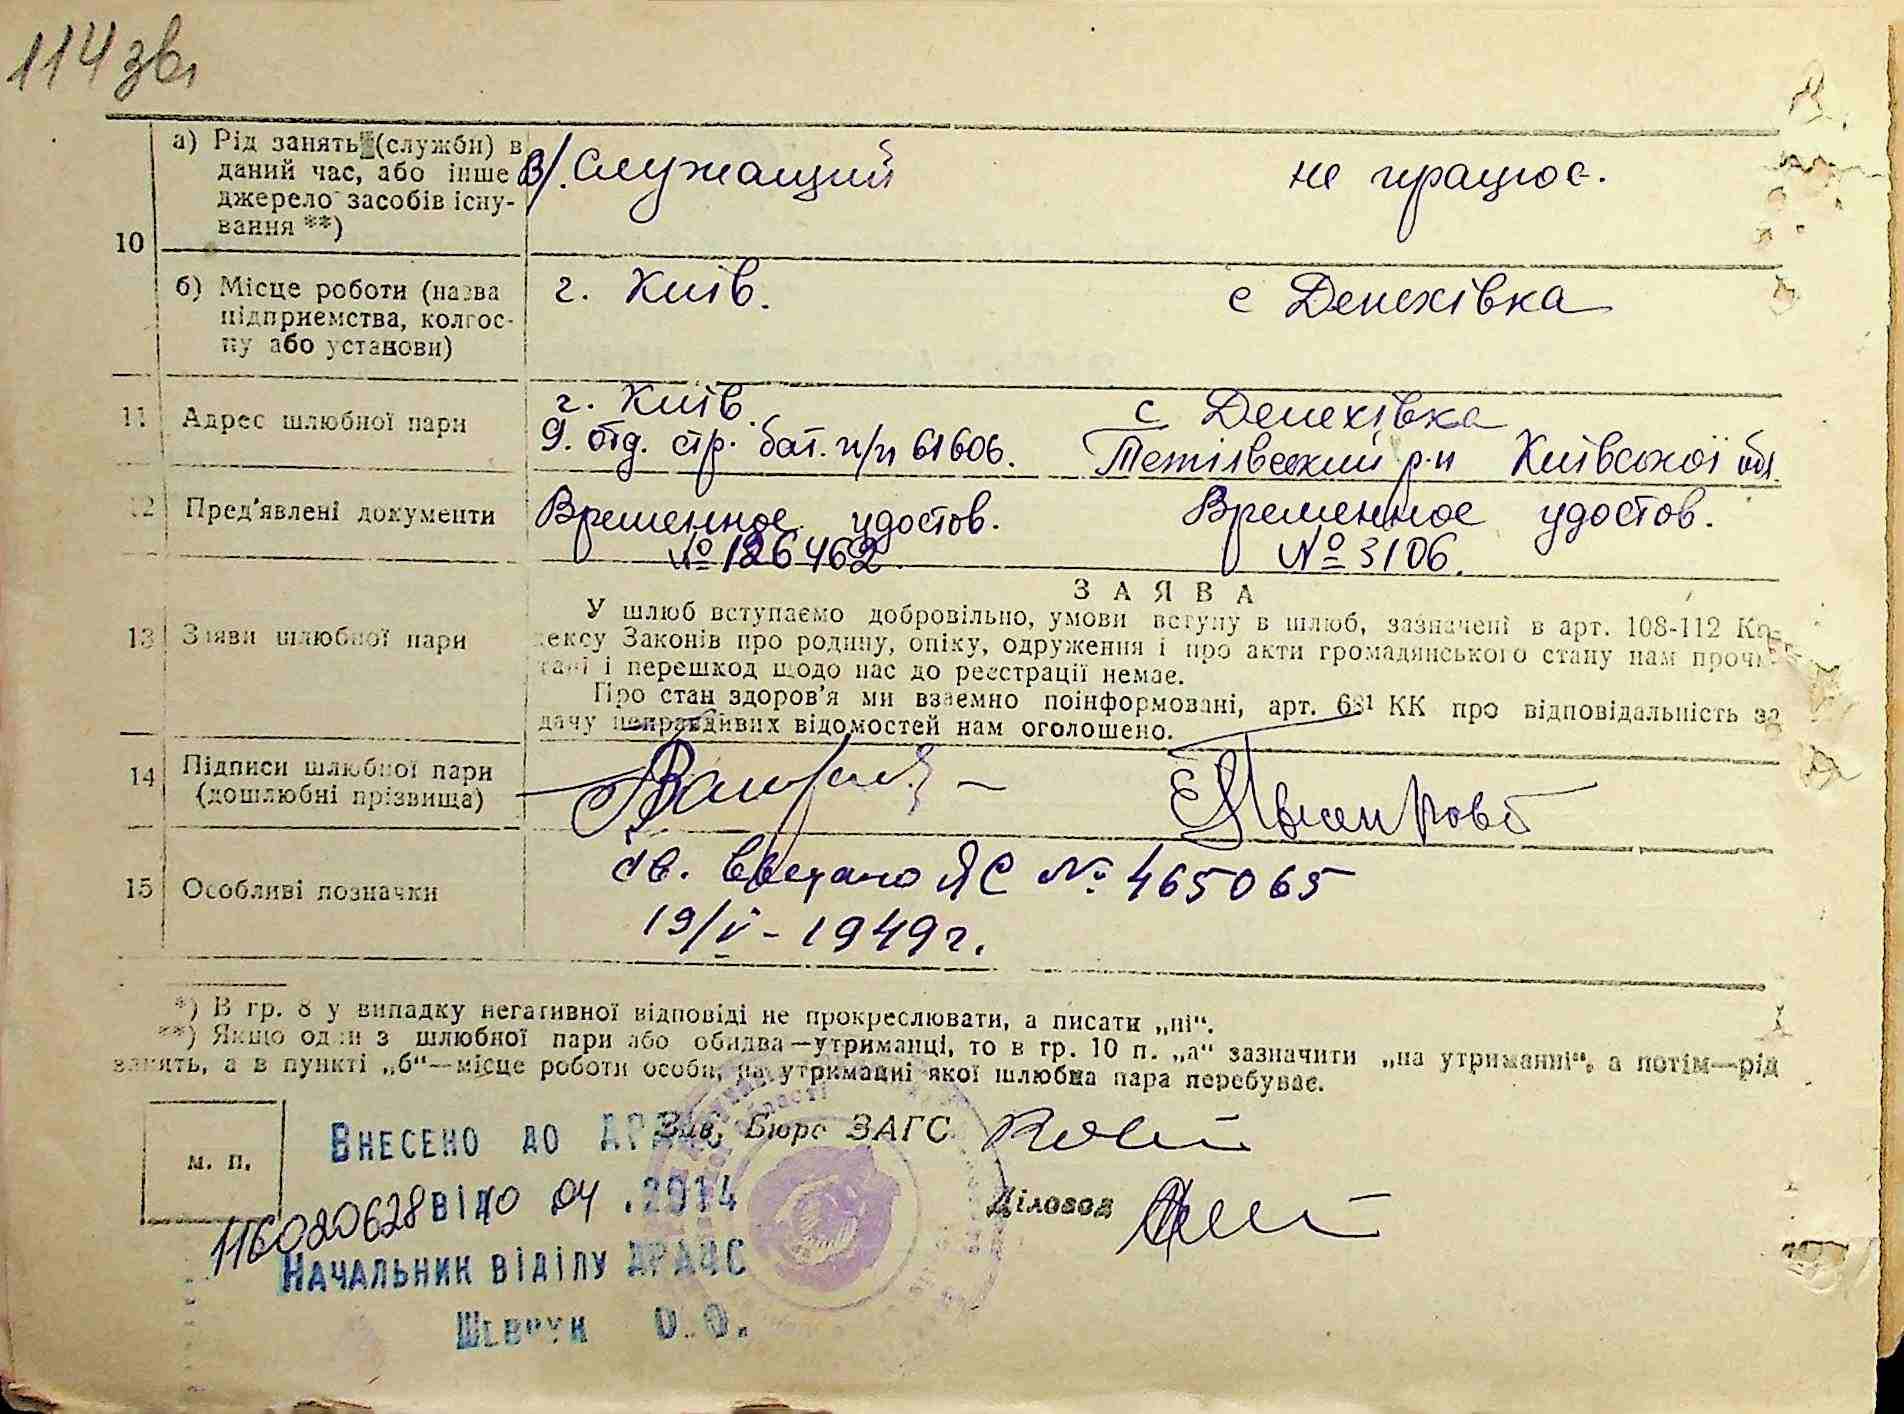 114 зв.
а) Рід занять (служби) в
даний час, або інше
джерело засобів існу-
вання **)
В/. Служащий
не працює.
10
б) Місце роботи (назва
підприємства, колгос-
пу або установи)
г. Київ.
с Денехівка
11 Адрес шлюбної пари
г. Київ.
9. отд. стр. бат. п/п 61606.
с Денехівка
Тетіївський р-н Київської обл.
12 Пред'явлені документи
Временное удостов.
№ 126462.
Временное удостов.
№ 3106.
13 Заяви шлюбної пари
ЗАЯВА
У шлюб вступаємо добровільно, умови вступу в шлюб, зазначені в арт. 108-112 Ко-
дексу Законів про родину, опіку, одруження і про акти громадянського стану нам прочи-
тані і перешкод щодо нас до реєстрації немає.
Про стан здоров'я ми взаємно поінформовані, арт. 68¹ КК про відповідальність за
дачу неправдивих відомостей нам оголошено.
14 Підписи шлюбної пари
(дошлюбні прізвища)
15 Особливі позначки
Св. видано ЯС № 465065
19/V - 1949 г.
*) В гр. 8 у випадку негативної відповіді не прокреслювати, а писати „ні".
**) Якщо один з шлюбної пари або обидва—утриманці, то в гр. 10 п. „а" зазначити „на утриманні", а потім—рід
занять, а в пункті „б"—місце роботи особи, на утриманні якої шлюбна пара перебуває.
м. п.
Зав. Бюро ЗАГС
Діловод
Внесено до ДРАЦС
116020628 від 0 04 .2014
Начальник відділу ДРАЦС
Шевчук О.О.